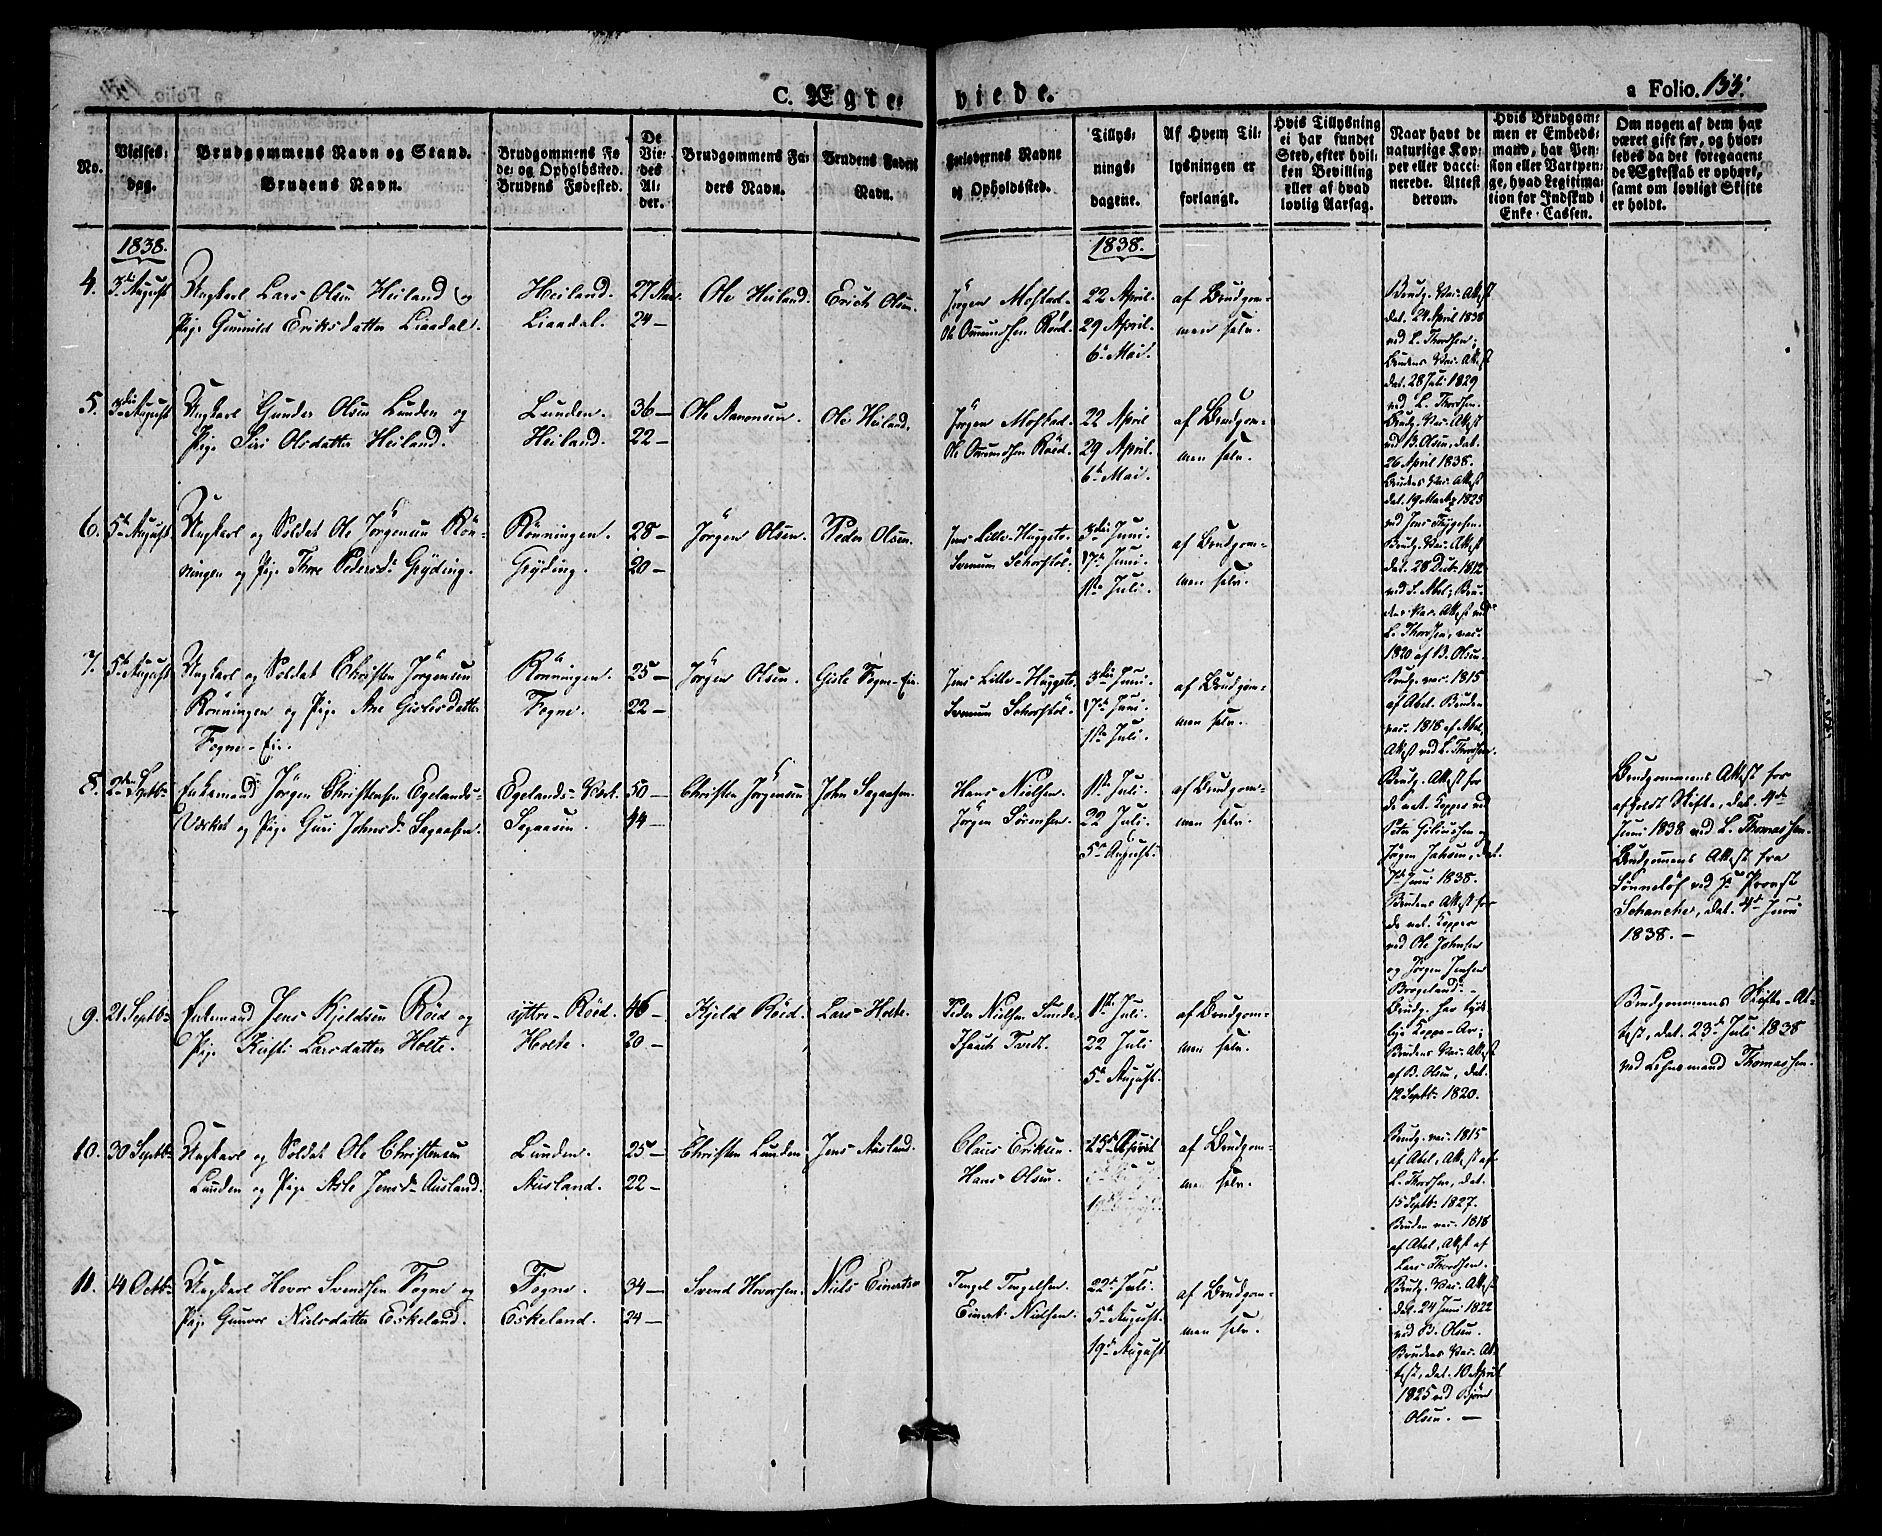 C. Ægte-
viede.
a Folio. 155.
No.
Vielses-
dag.
Brudgommens Navn og Stand.
Brudens Navn.
Brudgommens Fø
de- og Opholdsted.
Brudens Fødested.
De
Vie-
des
Al-
der.
Brudgommens Fa-
ders Navn.
Brudens Faders
Navn.
Forlovernes Navne
og Opholdssted.
Tillys-
nings-
dagene.
Af Hvem Til-
lysningen er
forlangt.
Hvis Tillysning
ei har fundet
Sted, efter hvil-
ken Bevilling
eller af hvad
lovlig Aarsag.
Naar havt de
naturlige Kop-
per eller vacci-
nerede. Attest
derom.
Hvis Brudgom-
men er Embeds-
mand, har Pen-
sion eller Vartpen-
ge, hvad Legitima-
tion for Indskud i
Enke-Cassen.
Om nogen af dem har
været gift før, og hvor-
ledes da det foregaaen-
de Ægteskab er ophørt,
samt om lovligt Skifte
er holdt.
1838.
1838.
4.
3die August
Ungkarl Lars Olsen Heiland og
Pige Gunnild Eriksdatter Liaadal.
Heiland.
Liaadal.
27 Aar.
24 —
Ole Heiland.
Erich Olsen.
Jørgen Mostad.
Ole Omundsen Röed.
22 April.
29 April.
6te Mai.
af Brudgom-
men selv.
Brudg. Vac. Attest
dat. 24 April 1838
ved L. Thordsen;
Brudens Vac. Attest
dat. 28 Juli 1829
ved L. Thordsen.
5.
3die August
Ungkarl Gunder Olsen Lunden og
Pige Siri Olsdatter Heiland.
Lunden.
Heiland.
36 —
22 —
Ole Aanonsen.
Ole Heiland.
Jørgen Mostad.
Ole Omundsen Röed.
22 April
29 April.
6te Mai.
af Brudgom-
men selv.
Brudg. Vac. Attest
ved B. Olsen, dat.
26 April 1838.
Brudens Vac. Attest
dat. 19 Marts 1825
ved Jens Thygesen.
6.
5te August
Ungkarl og Soldat Ole Jörgensen Rön-
ningen og Pige Thore Pedersdr Gryting.
Rönningen.
Gryting.
28 —
20 —
Jørgen Olsen.
Peder Olsen.
Jens Lille-Huggste.
3die Juni.
17de Juni.
1ste Juli.
af Brudgom-
men selv.
Brudg. Vac. Attest
dat. 28 Decbr 1812
ved S. Abel; Bru-
dens Vac. Attest ved
L. Thordsen, vac.
1820 af B. Olsen.
7.
5te August
Ungkarl og Soldat Christen Jörgensen
Rönningen og Pige Ane Gislesdatter
Fogne-Eie.
Rönningen.
Fogne.
25 —
22 —
Jørgen Olsen.
Gisle Fogne-Eie.
Jens Lille-Huggste.
3die Juni.
17de Juni.
1ste Juli.
af Brudgom-
men selv.
Brudg. vac. 1815
af Abel. Bruden
vac. 1818 af Abel,
Attest ved L. Thordsen.
8.
2den Septbr
Enkemand Jörgen Christensen Egelands-
Værket og Pige Guri Johnsdr Sagaasen.
Egelands-Værk.
Sagaasen.
50 —
44 —
Christen Jörgensen
John Sagaasen.
Hans Nielsen.
Jørgen Sörensen.
1ste Juli.
22 Juli.
5te August.
af Brudgom-
men selv.
Brudg. Attest for
de nat. Kopper ved
Jørgen Jahsen, dat.
7de Juni 1838.
Brudens Attest for
de nat. Kopper
ved Ole Johnsen
og Jørgen Jensen
Brogeland. —
Brudgommens Attest for
afholdt Skifte, dat. 4de
Juni 1838 ved L. Thomassen.
Brudgommens Attest fra
Sønneløf ved Hr Provst
Schancher, dat. 4de Juni
1838. —
9.
21 Septbr
Enkemand Jens Kjeldsen Röed og
Pige Kirsti Larsdatter Holte.
yttre-Röed.
Holte.
46 —
20 —
Kjeld Röed.
Lars Holte.
Peder Nielsen Sunde.
Thaach Tvedt.
1ste Juli.
22 Juli
5te August.
af Brudgom-
men selv.
Brudg. har tyde-
lige Koppe-Ar;
Brudens Vac. Attest
af B. Olsen, dat.
12 Septbr 1820.
Brudgommens Skifte-At-
test, dat. 23de Juli 1838
ved Lehnsmand Thomassen.
10.
30 Septbr
Ungkarl og Soldat Ole Christensen
Lunden og Pige Asle Jensdr Ausland.
Lunden.
Ausland.
25 —
22 —
Christen Lunden
Jens Ausland.
Claus Eriksen.
Hans Olsen.
af Brudgom-
men selv.
Brudg. vac. 1815
af Abel, Attest af
L. Thordsen, dat.
15 Septbr 1827.
Bruden vac. 1818
af Abel, Attest af
Lars Thordsen.
11.
14 Octbr
Ungkarl Hovor Svendsen Fogne og
Pige Gunvor Nielsdatter Eskeland.
Fogne.
Eskeland.
34 —
24 —
Svend Hovorsen.
Niels Einertsen
Tengel Tengelsen.
Einert Nielsen.
22de Juli.
5te August.
19de August.
af Brudgom-
men selv.
Brudg. Vac. Attest
dat. 24 Juni 1822
ved B. Olsen.
Brudens Vac. At-
test, dat. 10 April
1825 ved Björn
Olsen. —